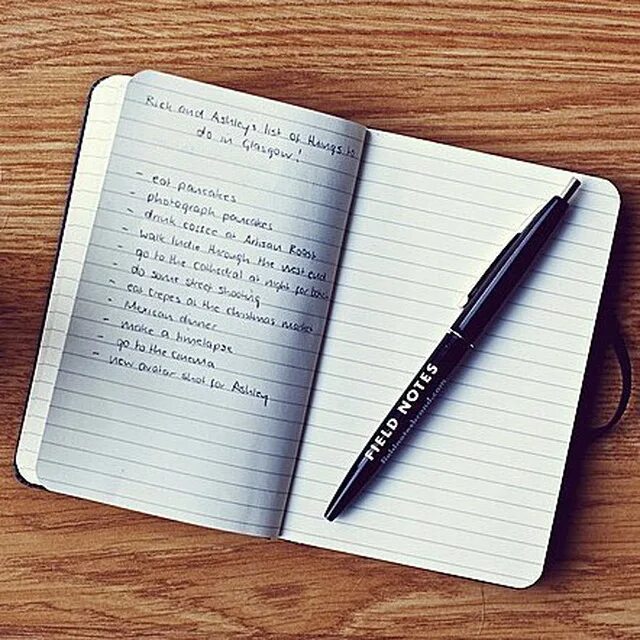 Rick and Ashleys list of things to
do in Glasgow!
- eat pancakes
- photograph pancakes
- drink coffee at Artisan Roast
- walk Indie through the west end
- go to the cathedral at night for
- do some street shooting
- eat crepes at the christmas market
- Mexican dinner
- make a timelapse
- go to the cinema
- new avatar shot for Ashley
FIELD NOTES
fieldnotesbrand.com